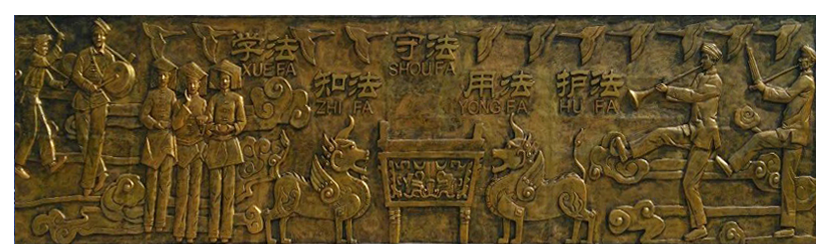 学法
XUE FA
知法
ZHI FA
守法
SHOU FA
用法
YONG FA
护法
HU FA